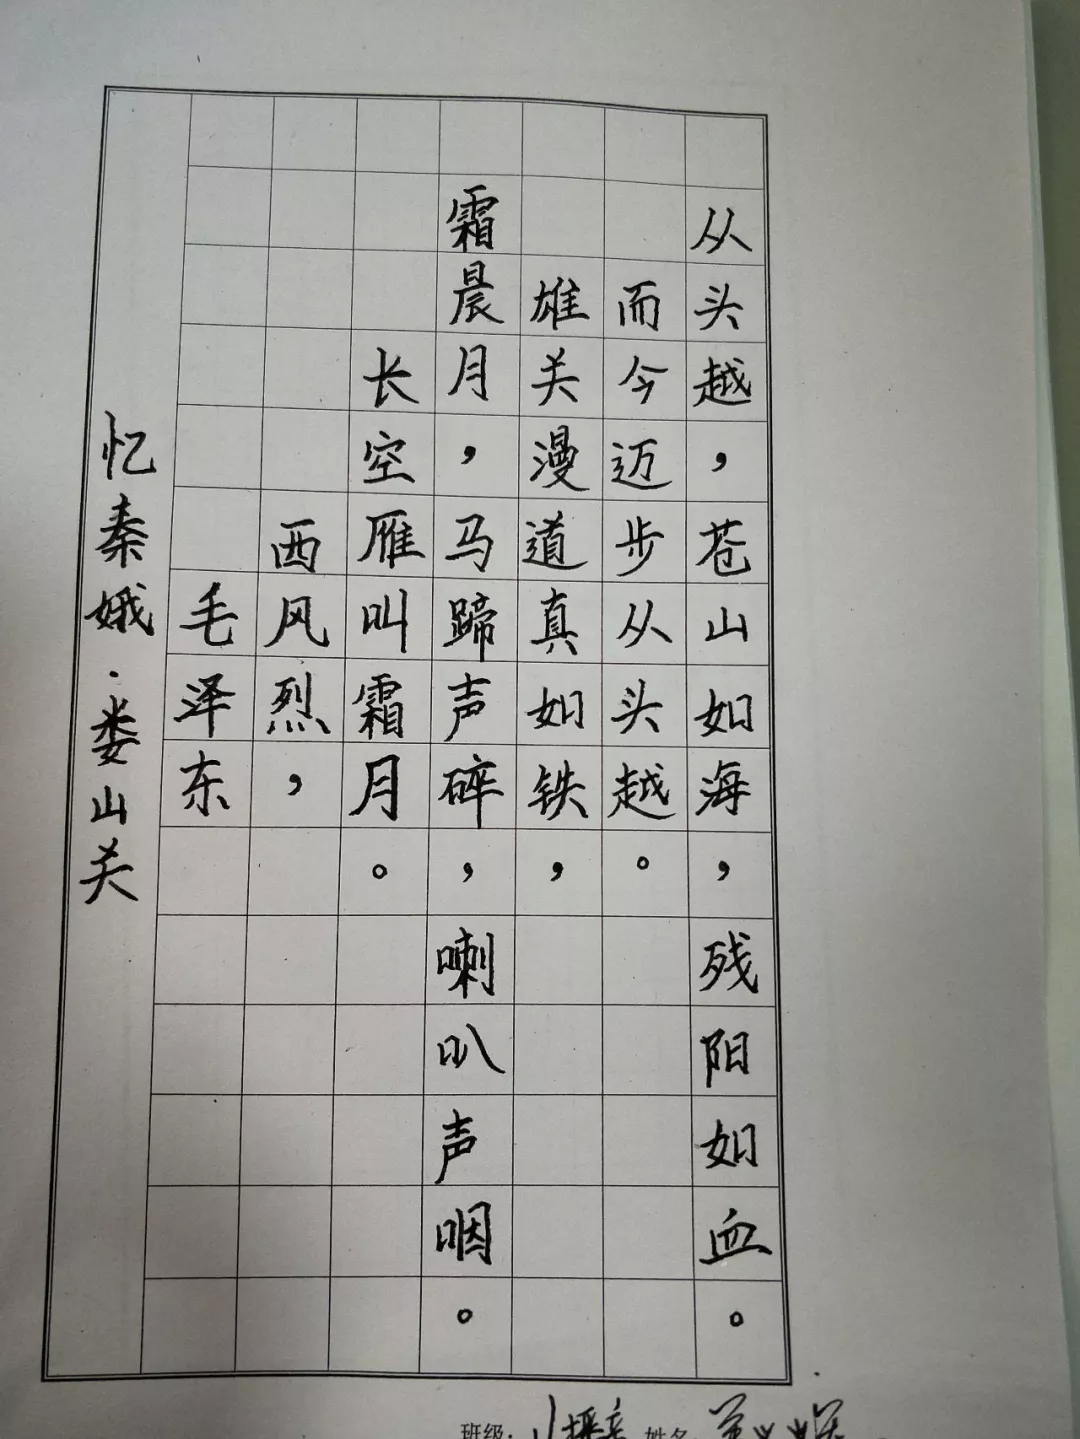 忆秦娥·娄山关
毛泽东
西风烈，
长空雁叫霜月。
霜晨月，马蹄声碎，喇叭声咽。
雄关漫道真如铁，
而今迈步从头越。
从头越，苍山如海，残阳如血。
班级：
姓名